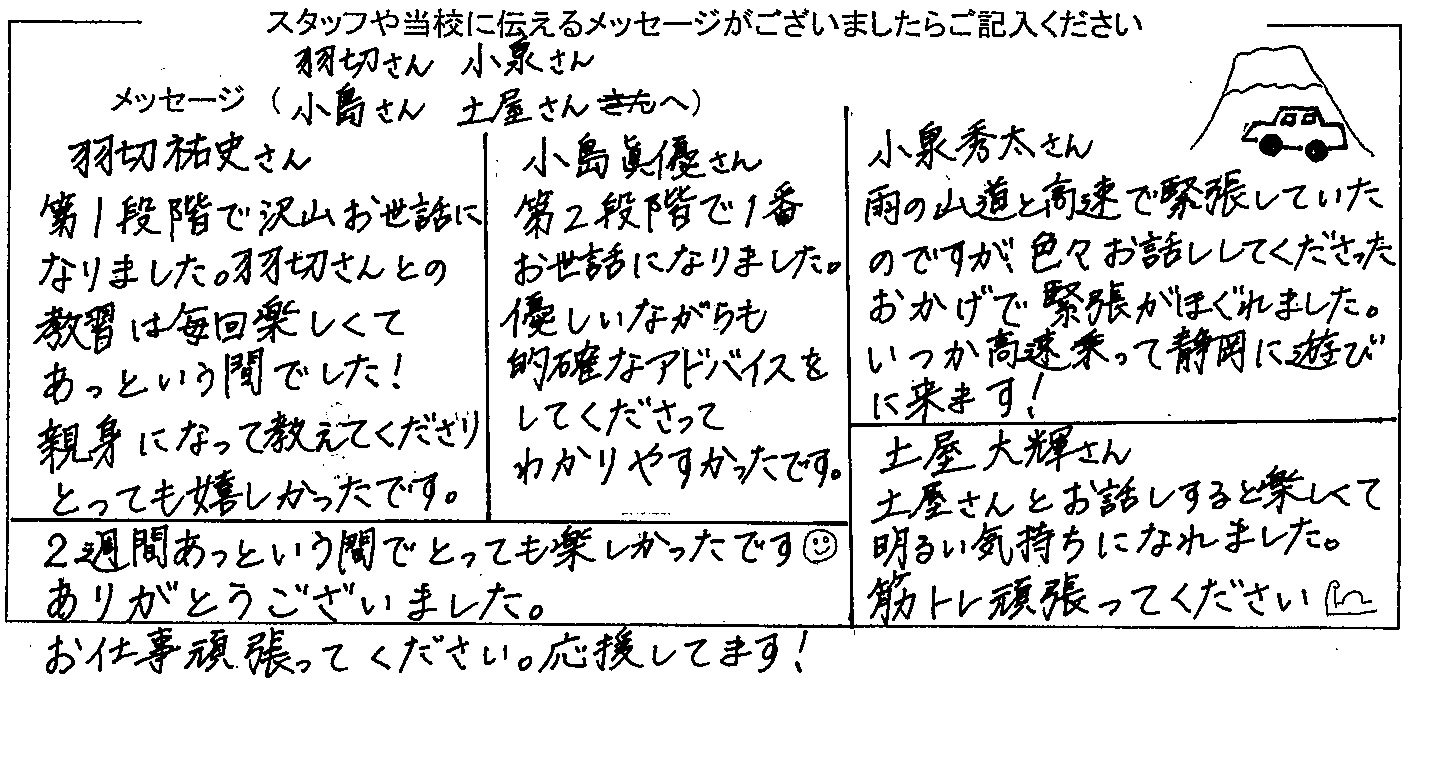 スタッフや当校に伝えるメッセージがございましたらご記入ください
羽切さん 小泉さん
メッセージ（小島さん 土屋さん さんへ）
羽切祐史さん
第1段階で沢山お世話に
なりました。羽切さんとの
教習は毎回楽しくて
あっという間でした!
親身になって教えてくださり
とっても嬉しかったです。
小島眞優さん
第2段階で1番
お世話になりました。
優しいながらも
的確なアドバイスを
してくださって
わかりやすかったです。
小泉秀太さん
雨の山道と高速で緊張していた
のですが、色々お話ししてくださった
おかげで緊張がほぐれました。
いつか高速乗って静岡に遊び
に来ます!
土屋大輝さん
土屋さんとお話しすると楽しくて
明るい気持ちになれました。
筋トレ頑張ってください
2週間あっという間でとっても楽しかったです
ありがとうございました。
お仕事頑張ってください。応援してます!